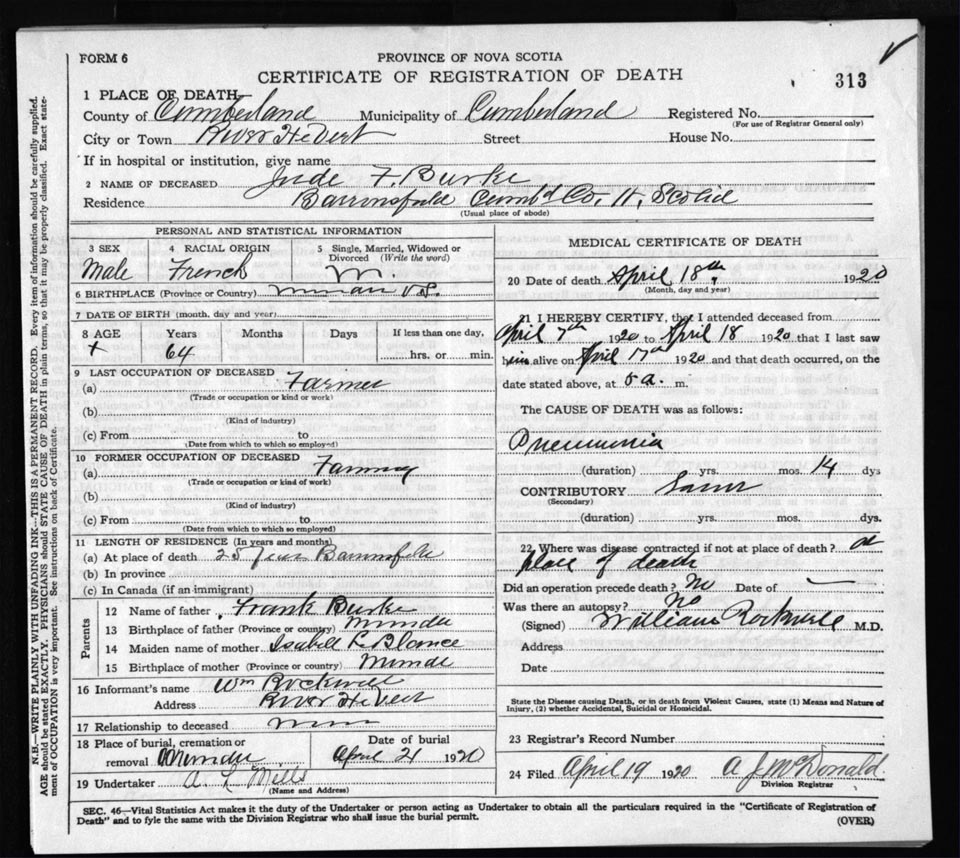 FORM 6
PROVINCE OF NOVA SCOTIA
CERTIFICATE OF REGISTRATION OF DEATH
313
1 PLACE OF DEATH
County of Cumberland Municipality of Cumberland Registered No.
(For use of Registrar General only)
City or Town River Hebert Street House No.
If in hospital or institution, give name
2 NAME OF DECEASED Jude F. Burke
Residence Cumbd Co, N, Scotia
(Usual place of abode)
PERSONAL AND STATISTICAL INFORMATION
3 SEX 4 RACIAL ORIGIN 5 Single, Married, Widowed or Divorced (Write the word)
Male French M.
6 BIRTHPLACE (Province or Country) N.S.
7 DATE OF BIRTH (month, day and year)
8 AGE Years Months Days If less than one day,
64 hrs. or min.
9 LAST OCCUPATION OF DECEASED
(a) Farmer
(Trade or occupation or kind or work)
(b)
(Kind of industry)
(c) From to
(Date from which to which so employed)
10 FORMER OCCUPATION OF DECEASED
(a) Farming
(Trade or occupation or kind of work)
(b)
(Kind of industry)
(c) From to
(Date from which to which so employed)
11 LENGTH OF RESIDENCE (In years and months)
(a) At place of death 25 years
(b) In province
(c) In Canada (if an immigrant)
Parents
12 Name of father Frank Burke
13 Birthplace of father (Province or country) Minudie
14 Maiden name of mother Isabell
15 Birthplace of mother (Province or country) Minudie
16 Informant's name Wm Rockwell
Address River Hebert
17 Relationship to deceased
18 Place of burial, cremation or removal Minudie Date of burial April 21 1920
19 Undertaker A. L. Mills
(Name and Address)
MEDICAL CERTIFICATE OF DEATH
20 Date of death April 18th 1920
(Month, day and year)
21 I HEREBY CERTIFY, that I attended deceased from
April 7th 1920 to April 18 1920 that I last saw
him alive on April 17th 1920 and that death occurred, on the
date stated above, at 5 a. m.
The CAUSE OF DEATH was as follows:
Pneumonia
(duration) yrs. mos. 14 dys
CONTRIBUTORY Same
(Secondary)
(duration) yrs. mos. dys.
22 Where was disease contracted if not at place of death? at
place of death
Did an operation precede death? No Date of
Was there an autopsy? No
(Signed) William Rockwell M.D.
Address
Date
State the Disease causing Death, or in death from Violent Causes, state (1) Means and Nature of
Injury, (2) whether Accidental, Suicidal or Homicidal.
23 Registrar's Record Number
24 Filed April 19 1920 A J McDonald.
Division Registrar
SEC. 46—Vital Statistics Act makes it the duty of the Undertaker or person acting as Undertaker to obtain all the particulars required in the "Certificate of Registration of
Death" and to fyle the same with the Division Registrar who shall issue the burial permit.
(OVER)
N.B.—WRITE PLAINLY WITH UNFADING INK—THIS IS A PERMANENT RECORD. Every item of information should be carefully supplied.
AGE should be stated EXACTLY. PHYSICIANS should STATE CAUSE OF DEATH in plain terms, so that it may be properly classified. Exact state-
ment of OCCUPATION is very important. See instructions on back of Certificate.